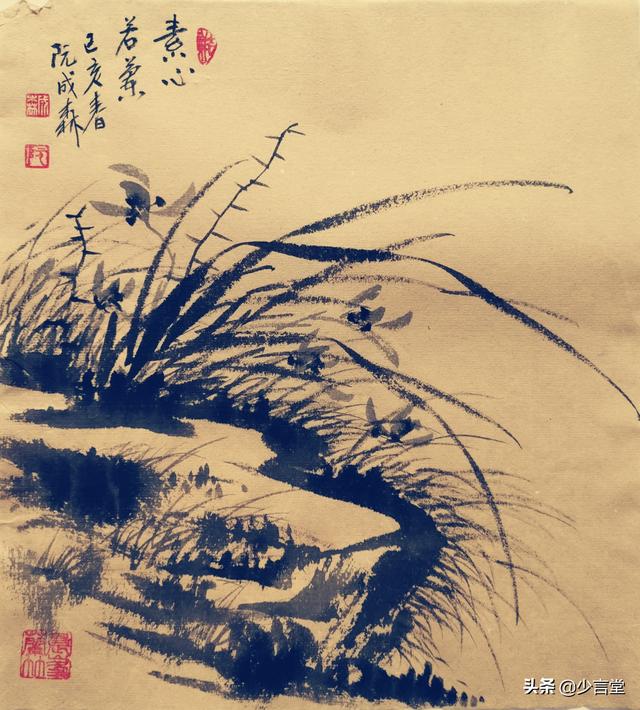 素心
若兰
己亥春
阮成森
头条 @少言堂